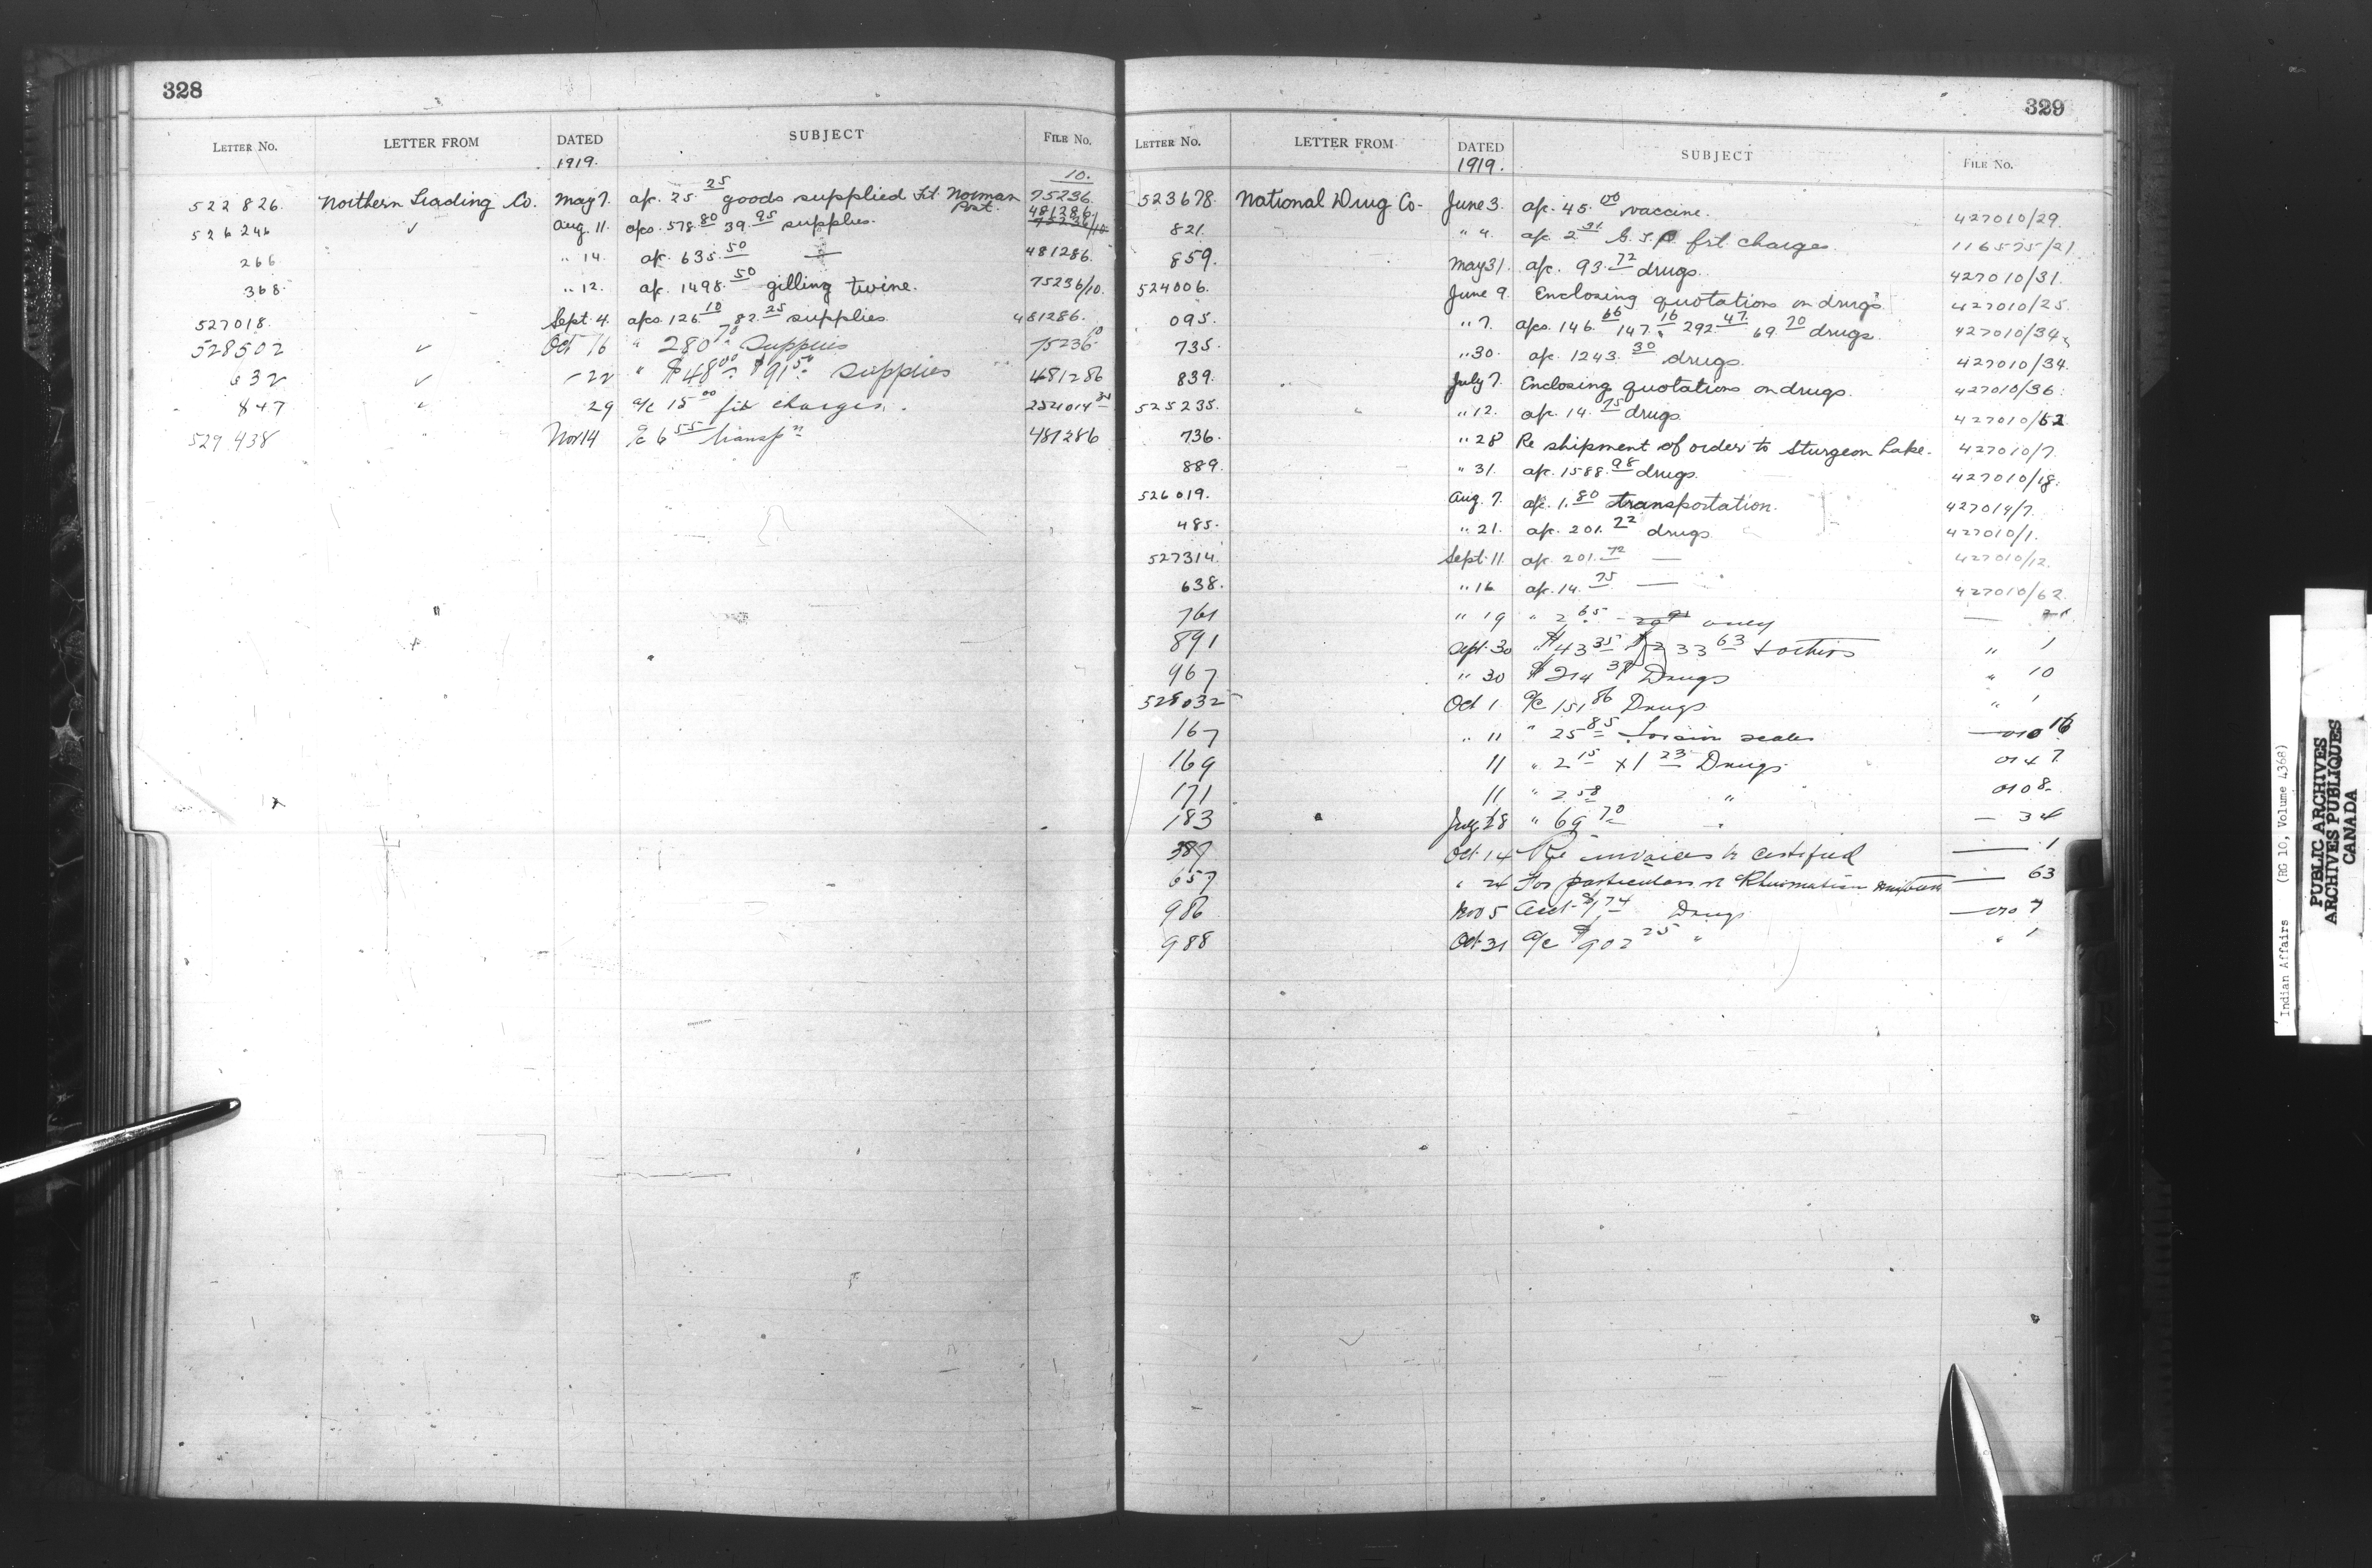 328
LETTER NO. LETTER FROM DATED SUBJECT FILE NO.
1919. 10.
522826. Northern Trading Co. May 7. a/c. 25.25 goods supplied Ft. Norman Post. 75236.
526246 ✓ Aug. 11. a/cs. 578.80 39.95 supplies. 481286. 75236/10
266 " 14. a/c. 635.50 — 481286.
368. " 12. a/c. 1498.50 gilling twine. 75236/10.
527018. Sept. 4. a/cs. 126.10 82.25 supplies. 481286.
528502 ✓ Oct 16 " 280.70 Supplies 75236 10
632 ✓ - 22 " $48.00 $91.50 supplies 481286
847 ✓ 29 a/c 15.00 frt charges. 254014
529438 " Nov 14 a/c 6.55 transpn 481286
329
LETTER NO. LETTER FROM DATED SUBJECT FILE NO.
1919.
523678. National Drug Co. June 3. a/c. 45.00 vaccine. 427010/29.
821. " 4. a/c. frt. charges. 116575/21
859. May 31. a/c. 93.72 drugs. 427010/31.
524006. June 9. Enclosing quotations on drugs. 427010/25.
095. " 7. a/cs. 146.66 147.16 292.47 69.70 drugs. 427010/34
735. " 30. a/c. 1243.30 drugs. 427010/34.
839. " July 7. Enclosing quotations on drugs. 427010/36.
525235. " " 12. a/c. 14.75 drugs. 427010/62
736. " 28 Re shipment of order to Sturgeon Lake. 427010/7.
889. " 31. a/c. 1588.98 drugs. 427010/18.
526019. Aug. 7. a/c. 1.80 transportation. 427014/7.
485. " 21. a/c. 201.22 drugs 427010/1.
527314. Sept. 11 a/c. 201.72 — 427010/12.
638. " 16 a/c. 14.75 — 427010/62.
761 " 19 " 2.65 —
891 Sept. 30 " $43.35 33.63 & others " 1
967 " 30 $214 Drugs " 10
528032 Oct 1 a/c 151.86 Drugs " 1
167 " 11 " 25.85 scales — 010 16
169 11 " 2.15 & 1.23 Drugs 014 7
171 11 " 2.58 " 010 8
183 " July 28 " 69.70 — 34
387 Oct. 14 Re invoices to certified — 1
657 " 24 For particulars re Rheumatism mixture — 63
986 Nov 5 acct. Drugs — 010 7
988 Oct. 31 a/c $902.25 " " 1
Indian Affairs (RG 10, Volume 4368)
PUBLIC ARCHIVES
ARCHIVES PUBLIQUES
CANADA